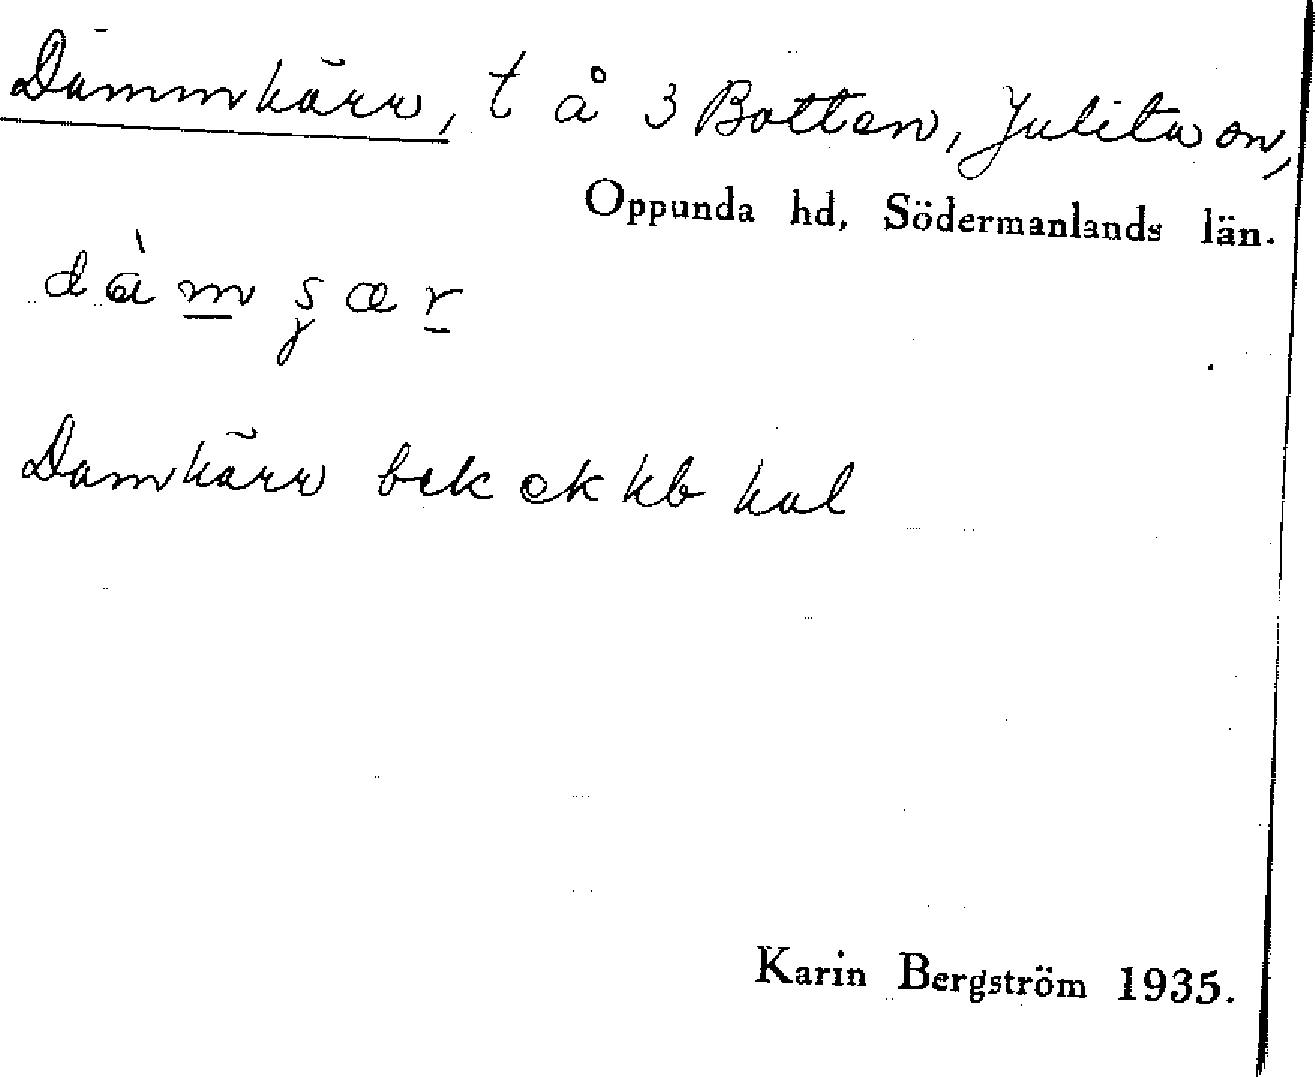 Dammkärr, t å 3 Botten, Julita sn,
Oppunda hd, Södermanlands län.
dàmʂær
Damkärr bek ek kb kal
Karin Bergström 1935.